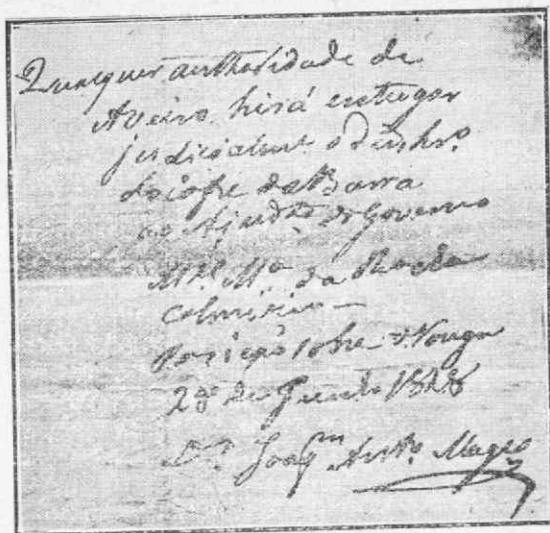 Quaequer authoridade de
Aveiro hirá entregar
judicialmt o dinhro.
do cofre da Barra
ao Ajude do Governo
Mel. Ma da Rocha
Colmieiro —
Posição sobre o Vouga
28 de Junho 1828
Dr. Joaqm Anto. Magro